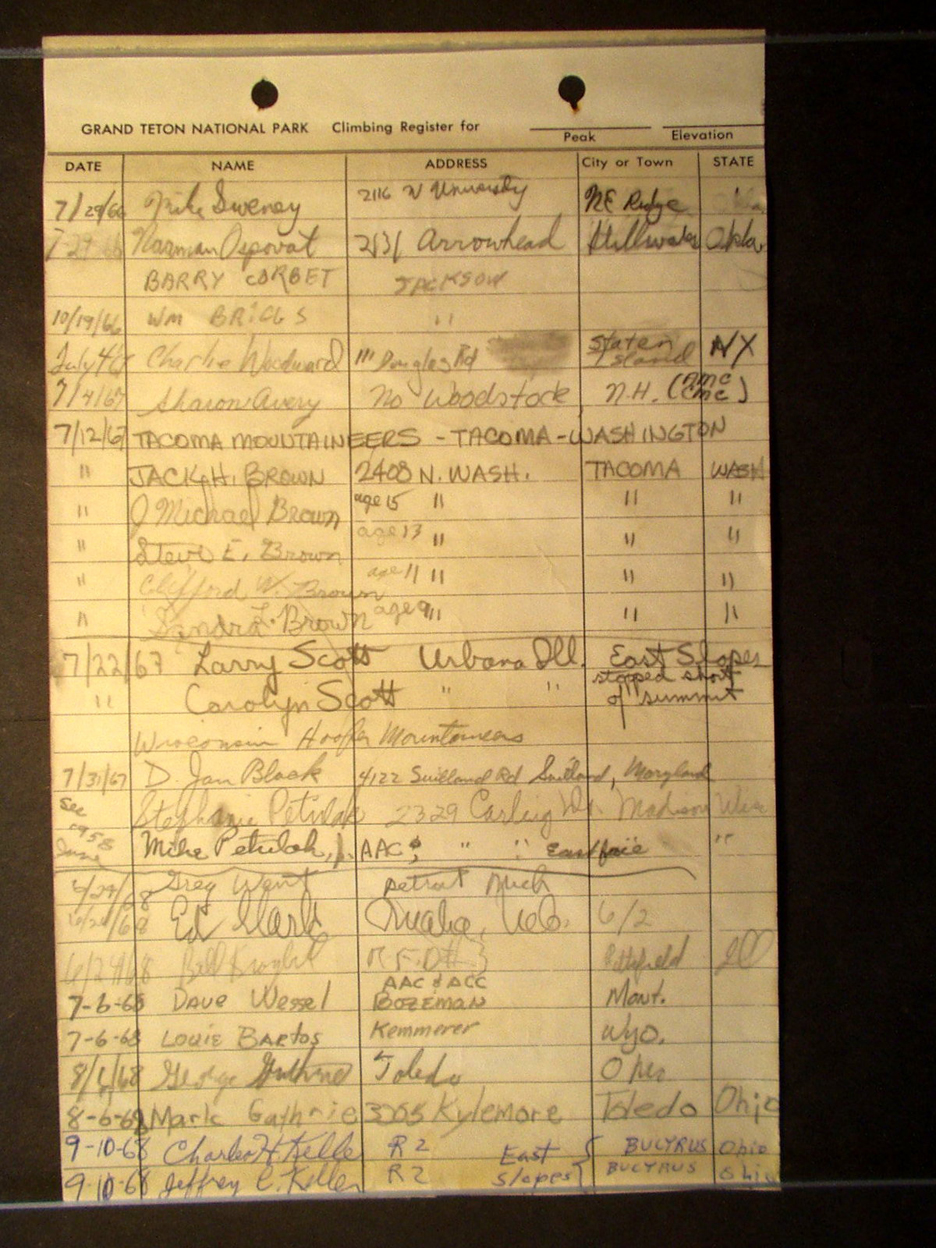 GRAND TETON NATIONAL PARK Climbing Register for
Peak Elevation
DATE NAME ADDRESS City or Town STATE
7/29/66 Mike Sweney 2116 N University NE Ridge
7-29-66 Norman Ospovat 2131 Arrowhead Stillwater Okla
BARRY CORBET JACKSON
10/19/66 WM BRIGGS "
July 4 Charlie Woodward 111 Douglas Rd Staten Island NY
7/4/67 Sharon Avery No Woodstock N.H.
7/12/67 TACOMA MOUNTAINEERS - TACOMA - WASHINGTON
" JACK H. BROWN 2408 N. WASH. TACOMA WASH
" J Michael Brown age 15 " " "
" Steve E. Brown age 13 " " "
" Clifford W. Brown age 11 " " "
" Sandra L. Brown age 9 " " "
7/22/67 Larry Scott Urbana Ill. East Slopes
stopped short
" Carolyn Scott " " of summit
Wisconsin Hoofer Mountaineers
7/31/67 D. Jan Black 4122 Suitland Rd Suitland, Maryland
See Stephanie Petrilak 2329 Carling Dr. Madison Wisc
1958
June Mike Petrilak, Jr. AAC " " East face "
6/29/68 Greg Detroit Mich
Ed Stark Omaha, Neb. 6/2
Bill Knight R.F.D. Pittsfield Ill
AAC & ACC
7-6-68 DAVE Wessel BOZEMAN Mont.
7-6-68 LOUIE BARtos Kemmerer Wyo.
8/6/68 George Guthrie Toledo Ohio
8-6-68 Mark Guthrie 3265 Kylemore Toledo Ohio
9-10-68 Charles H Keller R 2 East BUCYRUS Ohio
9-10-68 Jeffrey C. Keller R 2 Slopes BUCYRUS Ohio